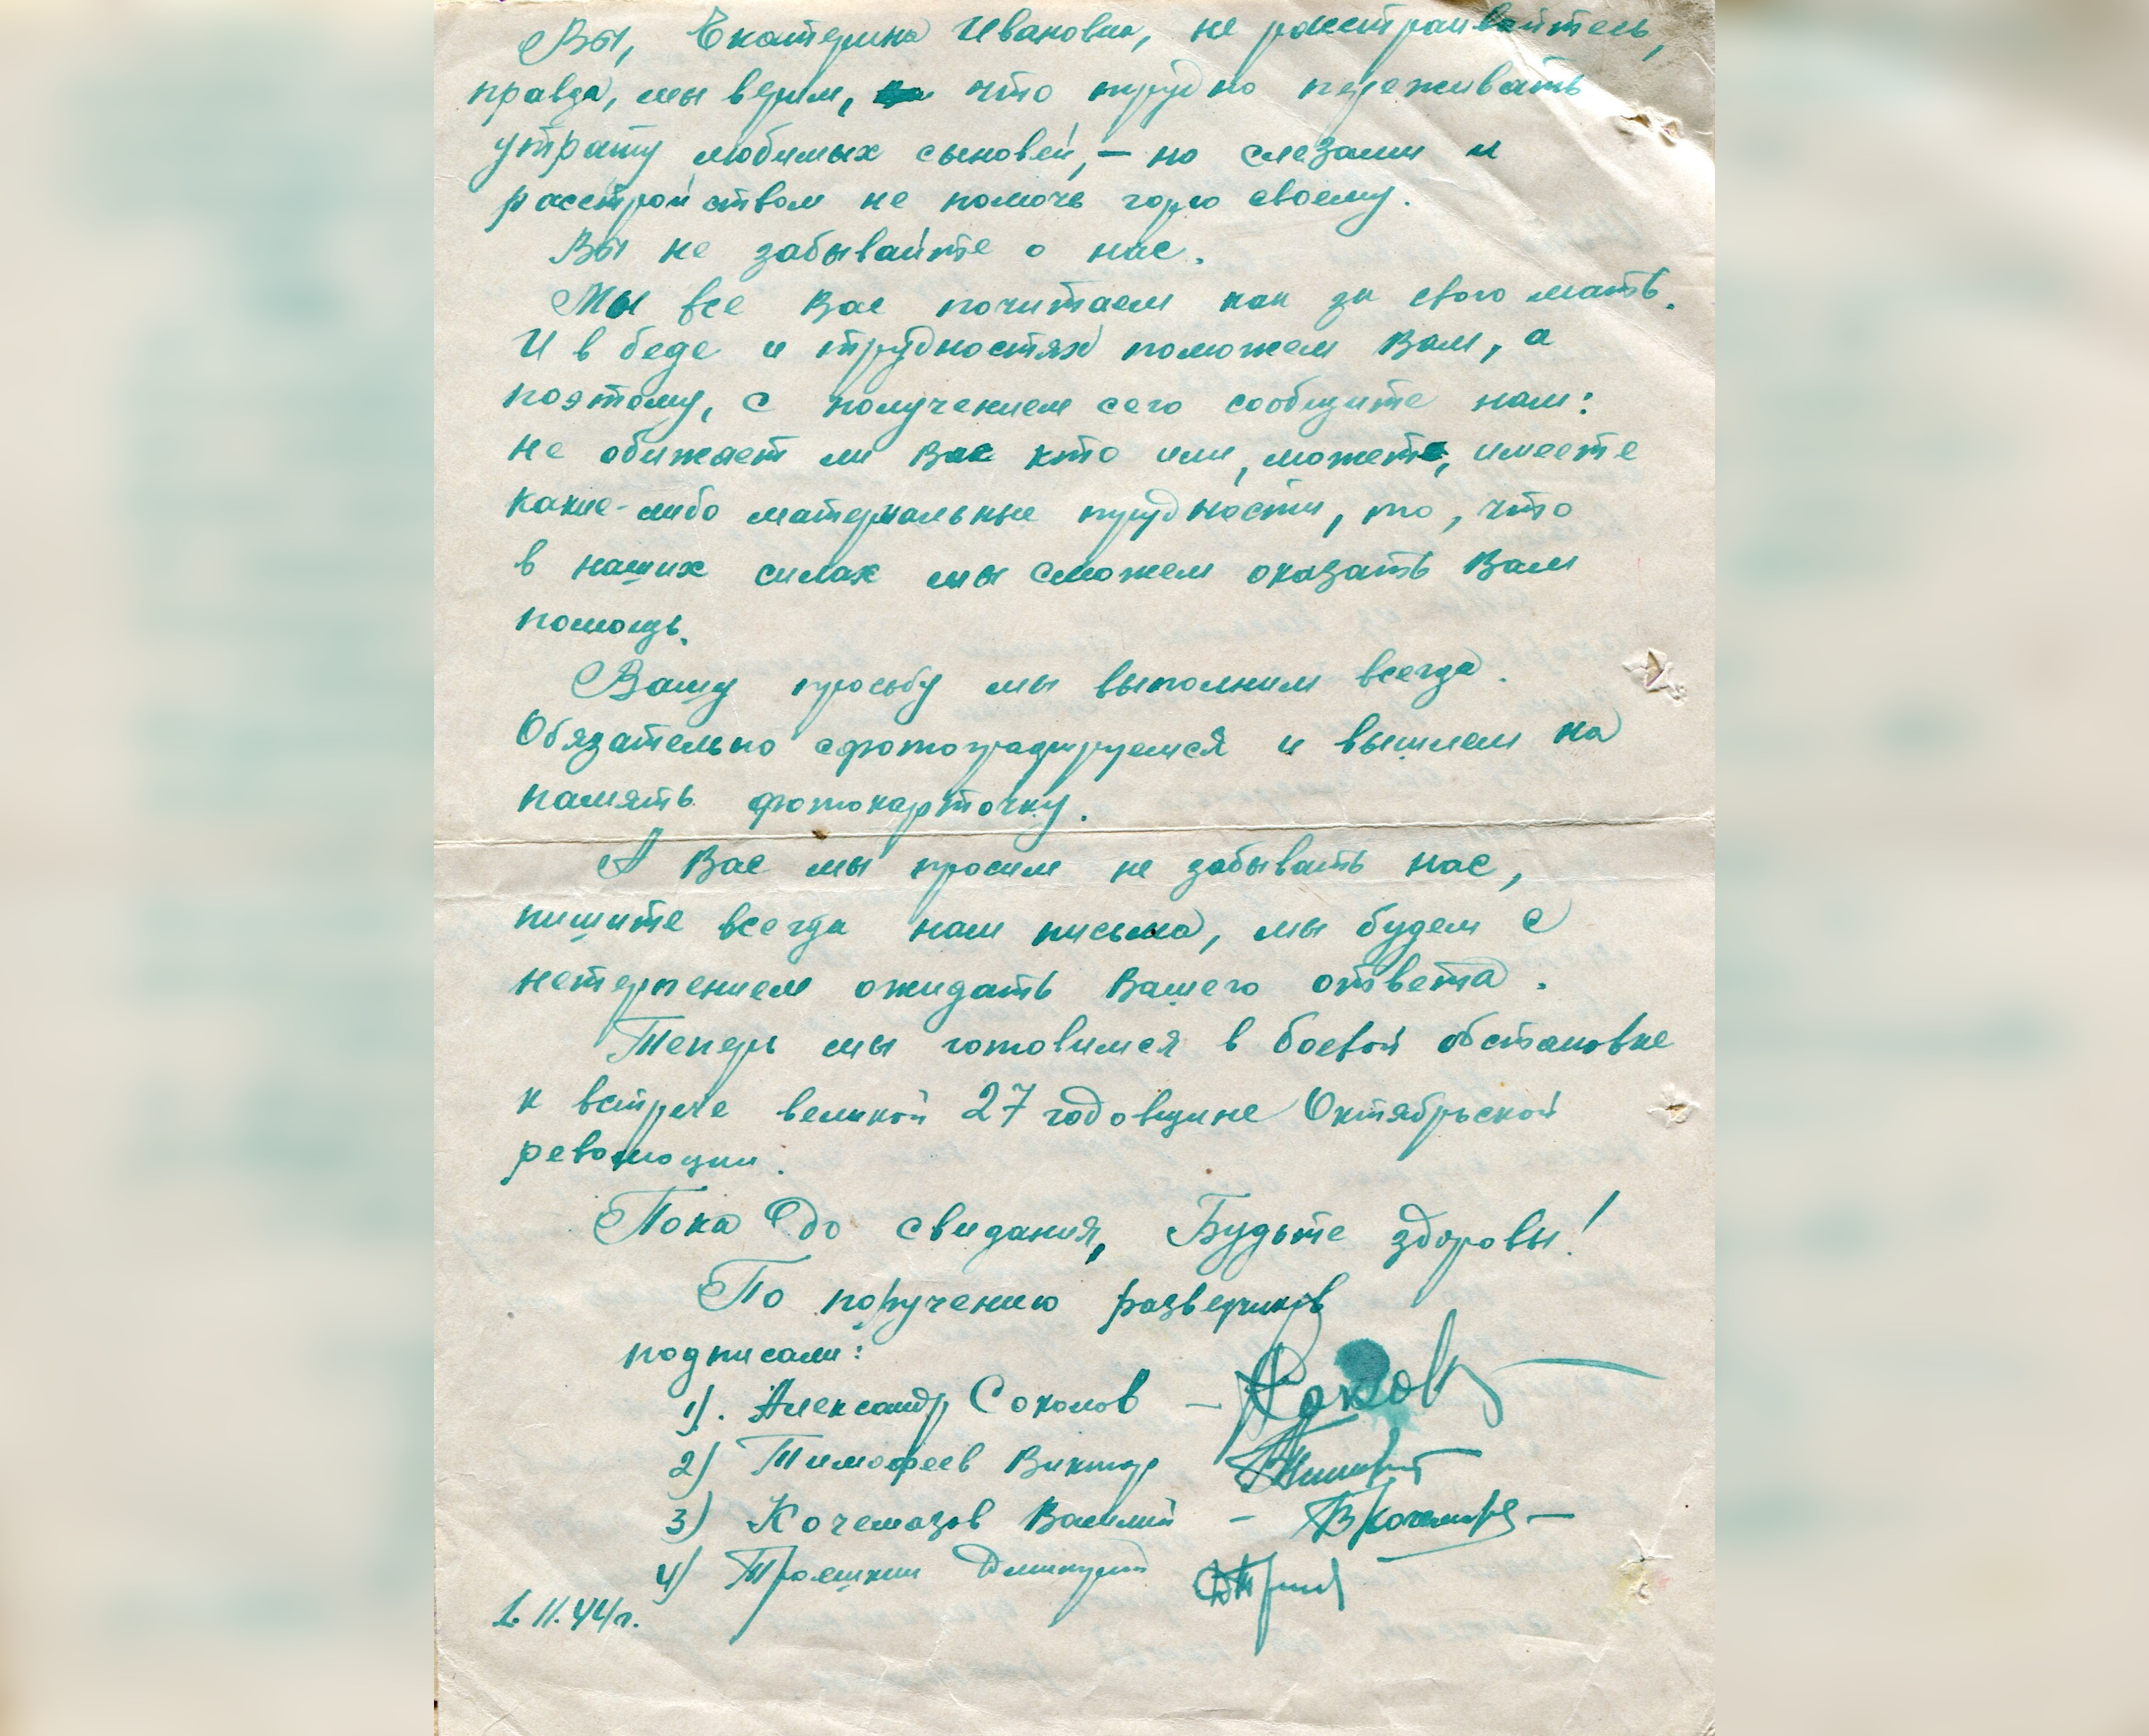 Вы, Екатерина Ивановна, не расстраивайтесь,
правда, мы верим, что трудно переживать
утрату любимых сыновей, – но слезами и
расстройством не помочь горю своему.
Вы не забывайте о нас.
Мы все Вас почитаем как за свою мать.
И в беде и трудностях поможем Вам, а
поэтому, с получением сего сообщите нам:
не обижает ли Вас кто или, может, имеете
какие-либо материальные трудности, то, что
в наших силах мы сможем оказать Вам
помощь.
Вашу просьбу мы выполним всегда.
Обязательно сфотографируемся и вышлем на
память фотокарточку.
А Вас мы просим не забывать нас,
пишите всегда нам письма, мы будем с
нетерпением ожидать Вашего ответа.
Теперь мы готовимся в боевой обстановке
к встрече великой 27 годовщине Октябрьской
революции.
Пока до свидания, Будьте здоровы!
По поручению разведчиков
подписали:
1). Александр Соколов –
2) Тимофеев Виктор
3) Кочемазов Василий – ВКочемазов –
4) Трошкин Дмитрий
1.11.44г.